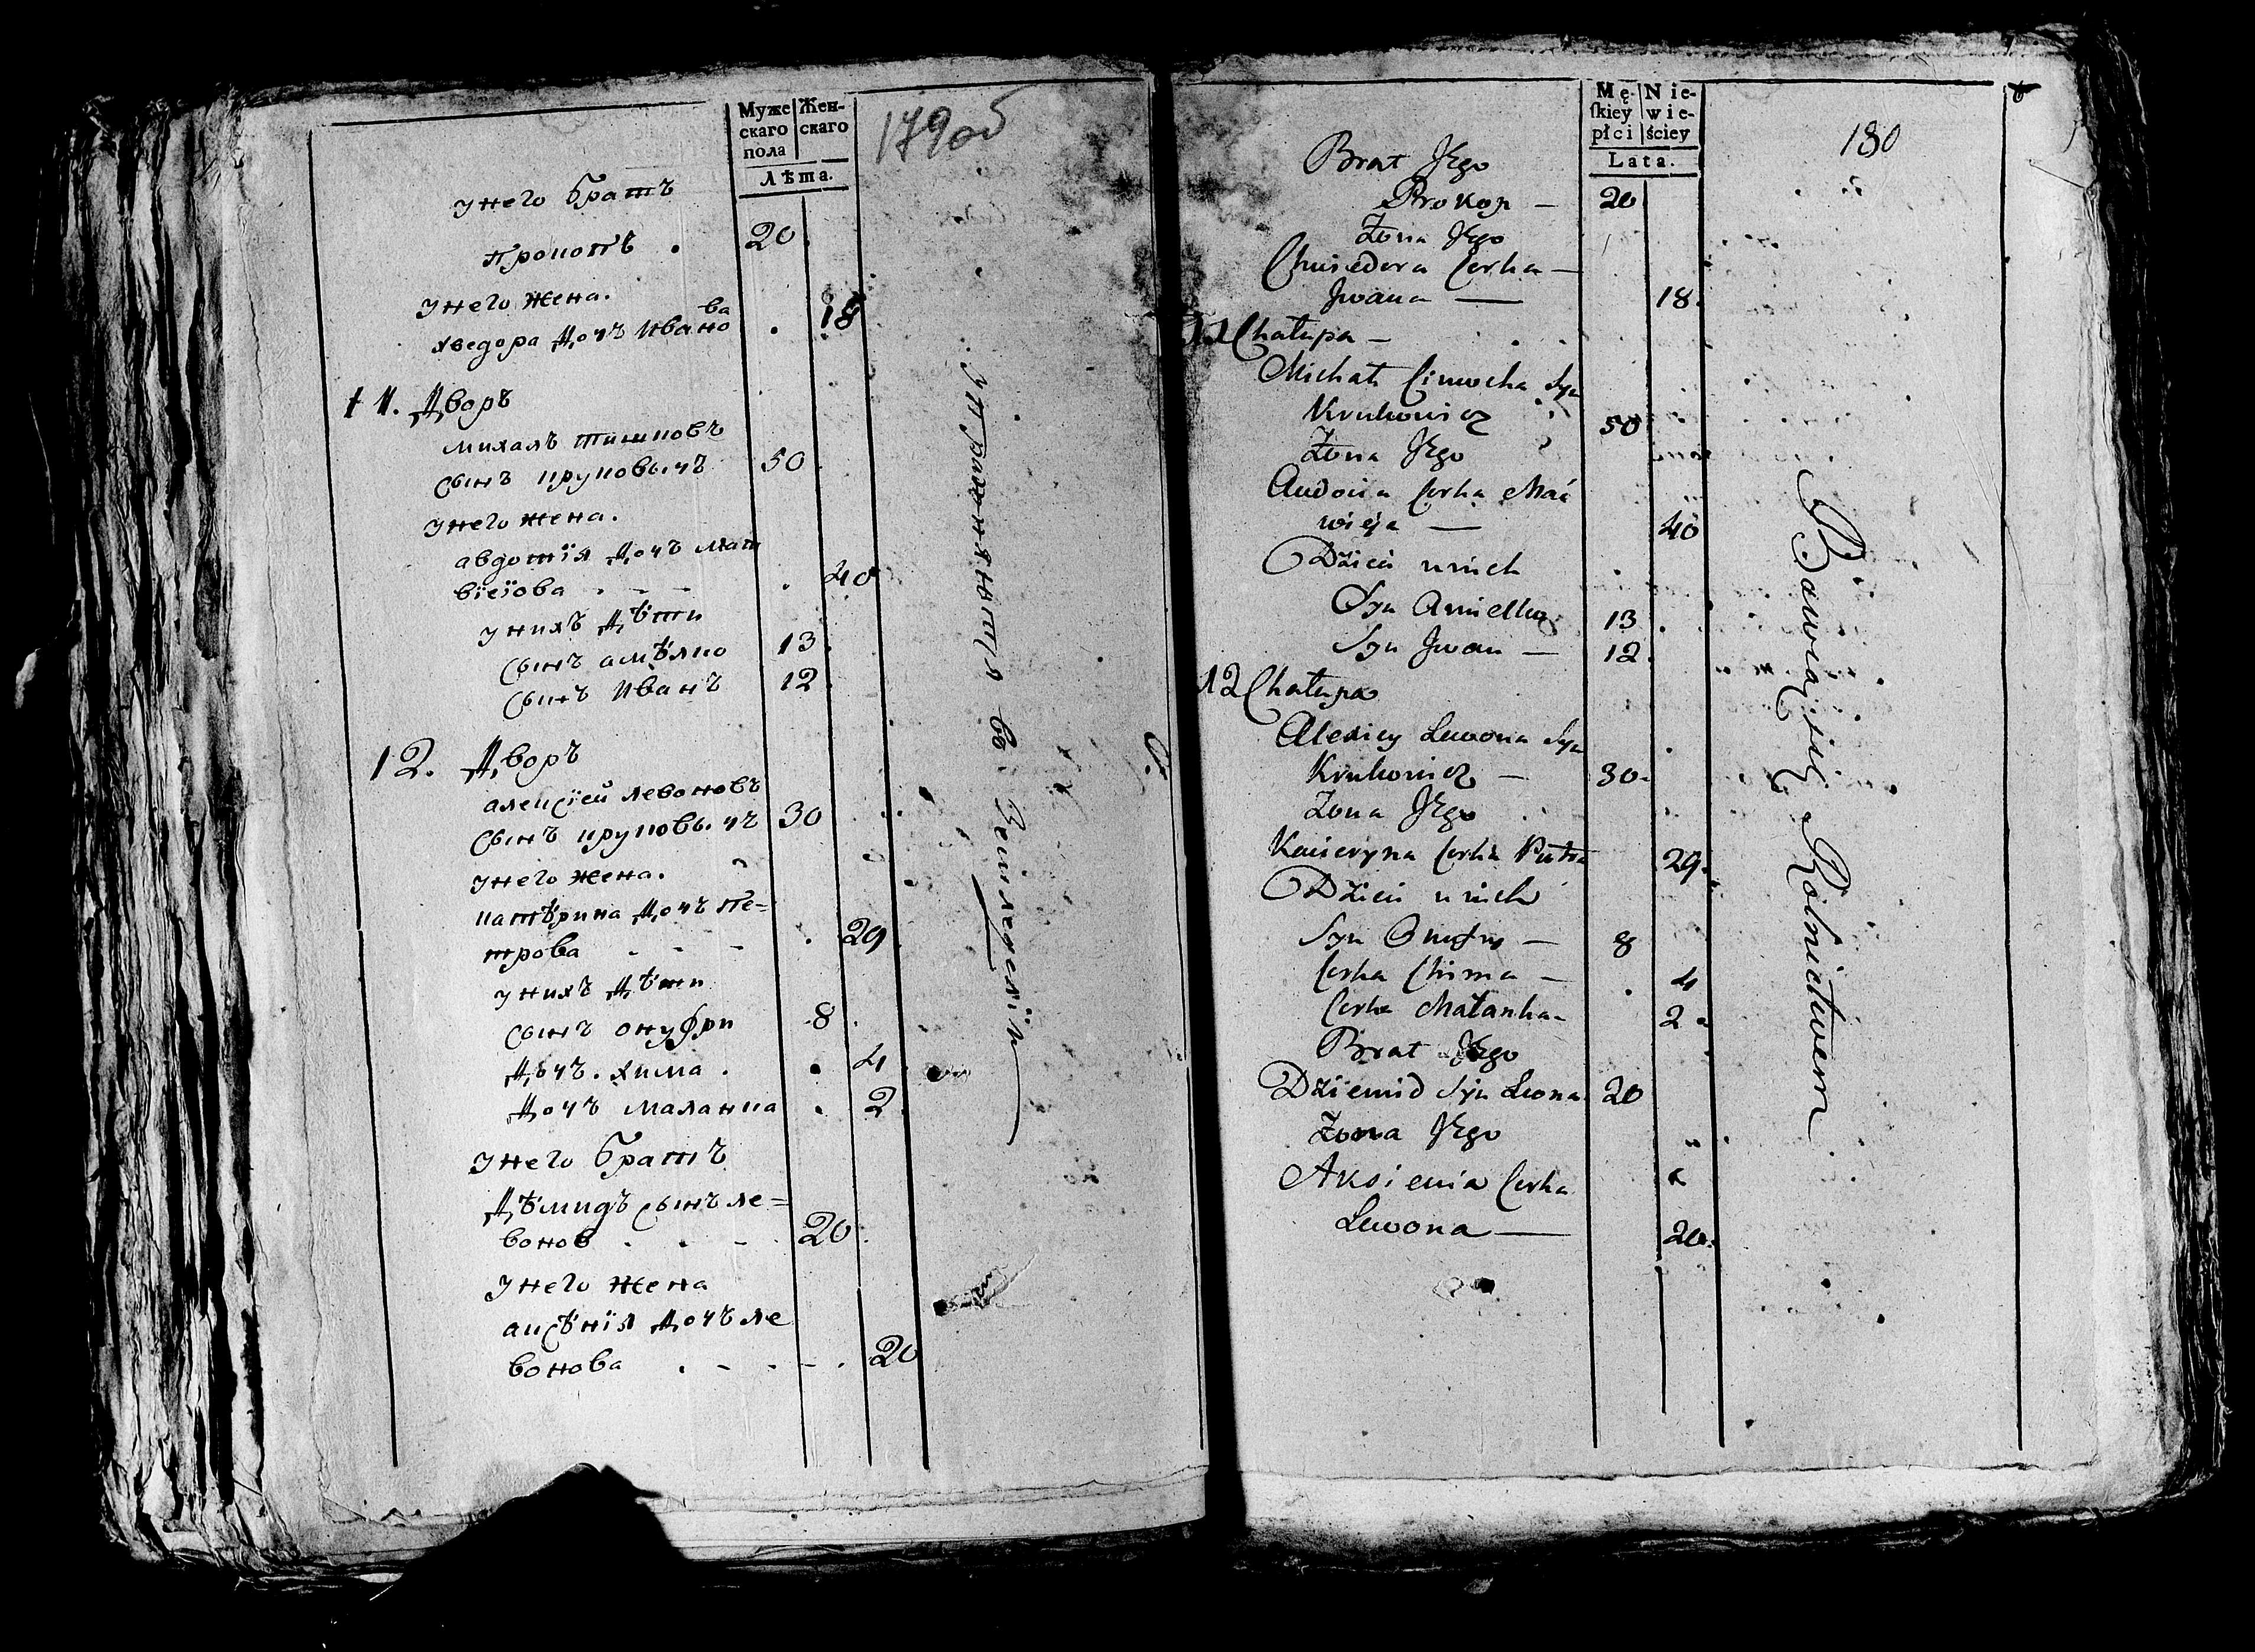 Муже Жен-
скаго скаго
пола
Лѣта.
179об
унего братъ
прокопъ . 20
унего жена.
хведора дочъ Ивано
ва . 18
11. Дворъ
михалъ тишковъ
сынъ круковычъ 50
унего жена.
авдотїя дочъ мат
вїеїова . - - . 40
унихъ дѣти
сынъ амѣлко 13
сынъ Иванъ 12
12. Дворъ
алексїей левоновъ
сынъ круковычъ 30
унего жена.
катѣрина дочъ Пе=
трова - - - . 29
унихъ дѣти
сынъ онуфри 8
дочъ. хима . . 4
дочъ маланка . 2
унего братъ
дѣмидъ сынъ ле=
вонов . - - 20
унего жена
аксѣнїя дочъ ле
вонова . - . - . 20
упражняютъся въ Земледелїи
Mę- Nie-
skiey wie-
płci ściey
Lata.
180
Brat Jego
Prokop — 20
Żona Jego
Chwiedora Corka —
Jwana — 18.
11 Chałupa —
Michał Cimocha Syn
Krukowicz 50
Żona Jego
Audocia Corka Mać
wieja — 40
Dzieci u nich
Syn Amielko 13
Syn Jwan — 12
12 Chałupa
Alexiey Lewona Syn
Krukowicz — 30
Żona Jego
Kacieryna Corka Piotra 29.
Dzieci u nich
Syn Onufry — 8
Corka Chima — 4
Corka Małanka - 2
Brat Jego
Dziemid Syn Lewona 20
Żona Jego
Aksienia Corka
Lewona — 20.
Bawią się Rolnictwem